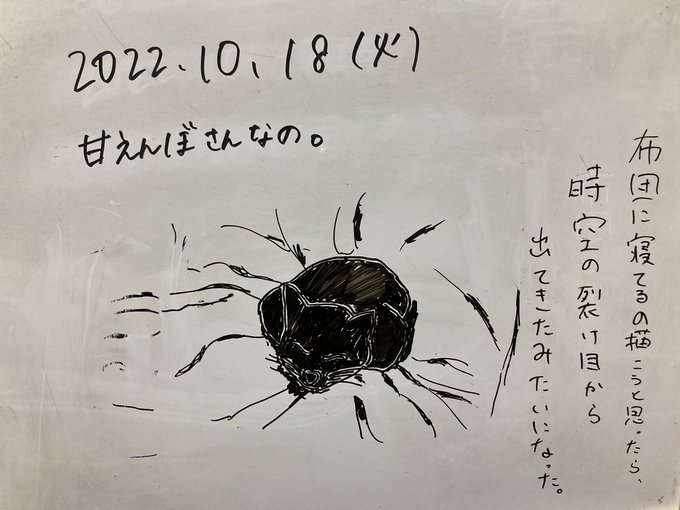 2022.10.18(火)
甘えんぼさんなの。
布団に寝てるの描こうと思ったら、
時空の裂け目から
出てきたみたいになった。